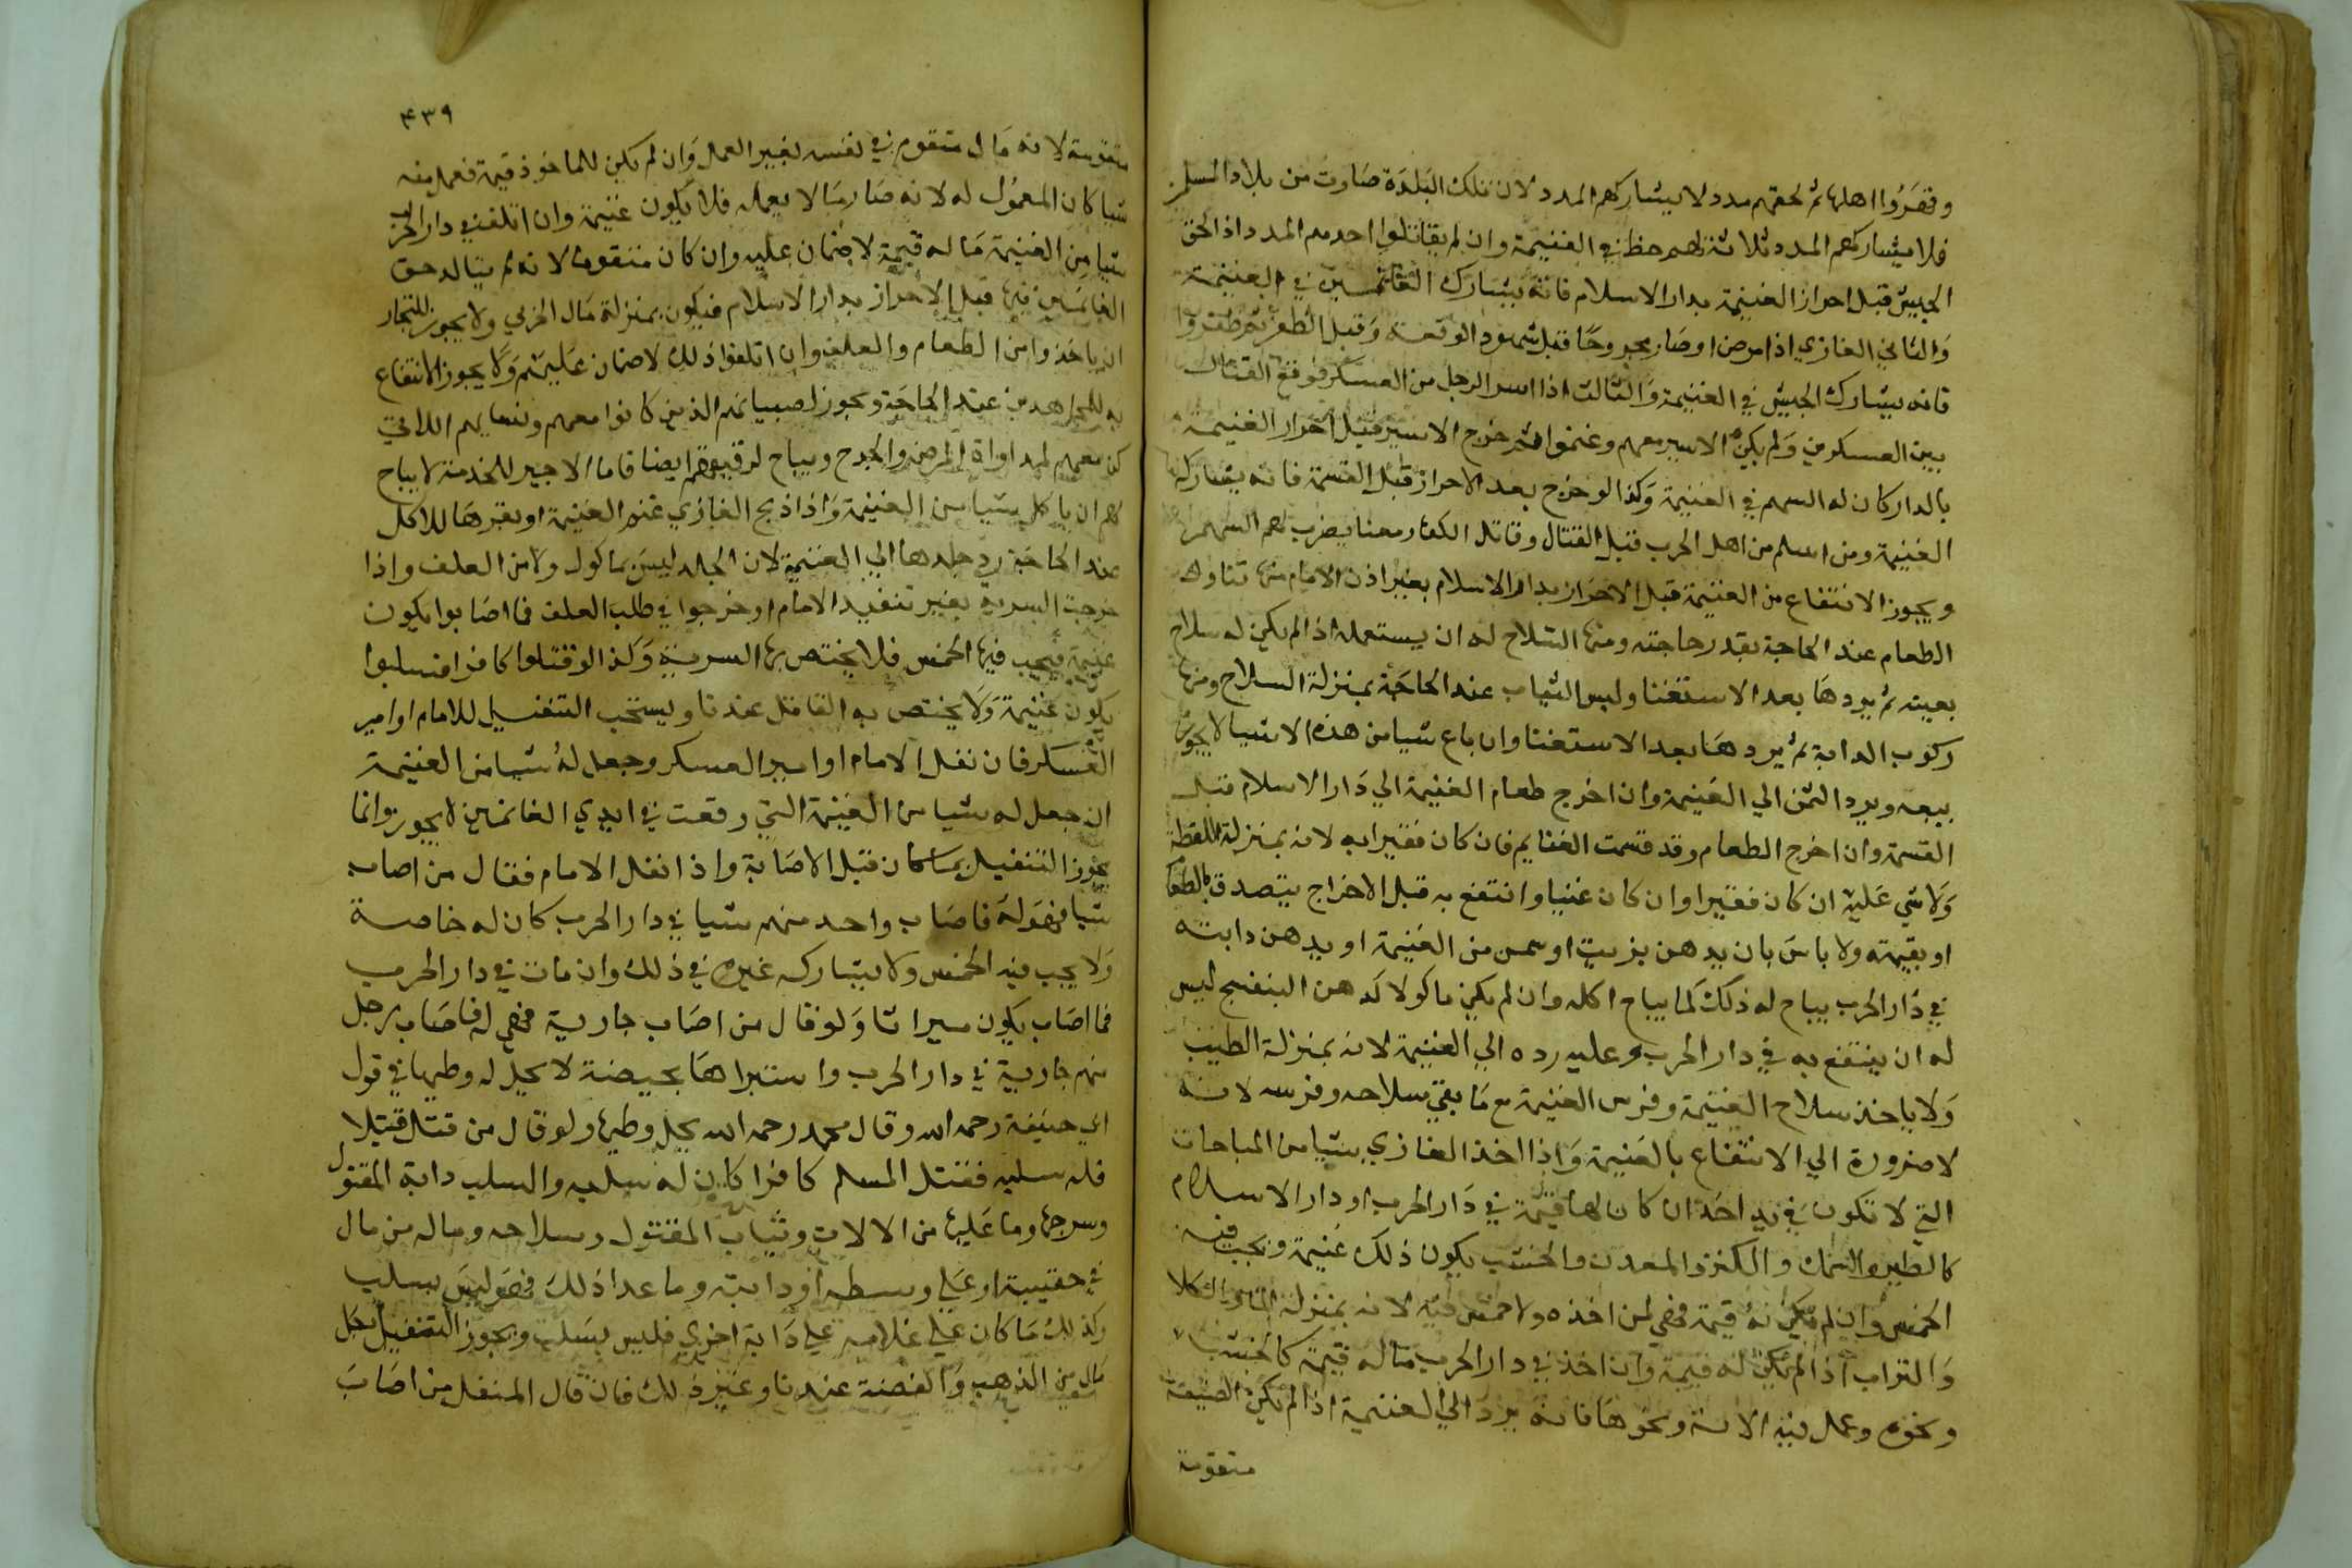 وقهروا اهلها ثم لحقهم مدد لا يشاركهم المدد لان تلك البلدة صارت من بلاد المسلمين
فلا يشاركهم المدد ثلاثة لهم حظ في الغنيمة وان لم يقاتلوا احدهم المدد اذا لحق
الجيش قبل احراز الغنيمة بدار الاسلام فانه يشارك الغانمين في الغنيمة
والثاني الغازي اذا مرض او صار مجروحا قبل شهود الوقعة وقبل الظفر
فانه يشارك الجيش في الغنيمة والثالث اذا اسر الرجل من العسكر فوقع القتال
بين العسكرين ولم يكن الاسير معهم وغنموا ثم خرج الاسير قبل احراز الغنيمة
بالدار كان له السهم في الغنيمة وكذا لو خرج بعد الاحراز قبل القسمة فانه يشاركه
الغنيمة ومن اسلم من اهل الحرب قبل القتال وقاتل الكفار معنا يضرب لهم السهم
ويجوز الانتفاع من الغنيمة قبل الاحراز بدار الاسلام بغير اذن الامام منها تناول
الطعام عند الحاجة بقدر حاجته ومنها السلاح له ان يستعمله اذا لم يكن له سلاح
بعينه ثم يردها بعد الاستغنا ولبس الثياب عند الحاجة بمنزلة السلاح ومنها
ركوب الدابة ثم يردها بعد الاستغنا وان باع شيا من هذه الاشيا لا يجوز
بيعه ويرد الثمن الي الغنيمة وان اخرج طعام الغنيمة الي دار الاسلام قبل
القسمة وان اخرج الطعام وقد قسمت الغنايم فان كان فقيرا به لانه بمنزلة اللقطة
ولا شي عليه ان كان فقيرا وان كان غنيا وانتفع به قبل الاخراج يتصدق بالطعام
او بقيمته ولا باس بان يدهن بزيت او سمن من الغنيمة او يدهن دابته
في دار الحرب يباح له ذلك كما يباح اكله وان لم يكن ماكولا كدهن البنفسج ليس
له ان ينتفع به في دار الحرب وعليه رده الي الغنيمة لانه بمنزلة الطيب
ولا ياخذ سلاح الغنيمة وفرس الغنيمة مع ما بقي سلاحه وفرسه لانه
لا ضرورة الي الانتفاع بالغنيمة واذا اخذ الغازي شيا من المباحات
التي لا تكون في يد احد ان كان لها قيمة في دار الحرب او دار الاسلام
كالطير والسمك والكنز والمعدن والخشب يكون ذلك غنيمة ويجب فيه
الخمس وان لم يكن له قيمة فهي لمن اخذه ولا خمس فيه لانه بمنزلة الما والكلا
والتراب اذا لم يكن له قيمة وان اخذ في دار الحرب ما له قيمة كالخشب
ونحوه وعمل فيه الانية ونحوها فانه يرد الي الغنيمة اذا لم يكن الصنيعة
متقومة
۴۳۹
متقومة لانه مال متقوم في نفسه بغير العمل وان لم يكن للماخوذ قيمة فعمل منه
شيا كان المعمول له لانه صار مالا بعمله فلا يكون غنيمة وان اتلف في دار الحرب
شيا من الغنيمة ما له قيمة لا ضمان عليه وان كان متقوما لانه لم يتاكد حق
الغانمين فيها قبل الاحراز بدار الاسلام فيكون بمنزلة مال الحربي ولا يجوز للتجار
ان ياخذوا من الطعام والعلف وان اتلفوا ذلك لا ضمان عليهم ولا يجوز الانتفاع
به للمجاهدين عند الحاجة ويجوز لصبيانهم الذين كانوا معهم ونسايهم اللاتي
كن معهم لمداواة المرضي والجرح ويباح لرقيقهم ايضا فاما الاجير للخدمة لا يباح
لهم ان ياكل شيا من الغنيمة واذا ذبح الغازي غنم الغنيمة او بقرها للاكل
عند الحاجة رد جلدها الي الغنيمة لان الجلد ليس بماكول ولا من العلف واذا
خرجت السرية بغير تنفيد الامام او خرجوا في طلب العلف فما اصابوا يكون
غنيمة فيجب فيها الخمس فلا يختص بها السرية وكذا لو قتلوا كافرا فسلبوا
يكون غنيمة ولا يختص به القاتل عندنا ويستحب التنفيل للامام او امير
العسكر فان نفل الامام او امير العسكر وجعل له شيا من الغنيمة
ان جعل له شيا من الغنيمة التي وقعت في ايدي الغانمين لا يجوز وانما
يجوز التنفيل بما كان قبل الاصابة واذا نفل الامام فقال من اصاب
شيا فهو له فاصاب واحد منهم شيا في دار الحرب كان له خاصة
ولا يجب فيه الخمس ولا يشاركه غيره في ذلك وان مات في دار الحرب
فما اصاب يكون ميراثا ولو قال من اصاب جارية فهي له فاصاب رجل
منهم جارية في دار الحرب واستبراها بحيضة لا يحل له وطيها في قول
ابي حنيفة رحمه الله وقال محمد رحمه الله يحل وطيها ولو قال من قتل قتيلا
فله سلبه فقتل المسلم كافرا كان له سلبه والسلب دابة المقتول
وسرجها وما عليها من الالات وثياب المقتول وسلاحه وماله من مال
في حقيبته او علي وسطه او دابته وما عدا ذلك فهو ليس بسلب
وكذلك ما كان علي غلامه علي دابة اخري فليس بسلب ويجوز التنفيل بكل
مال من الذهب والفضة عندنا وغير ذلك فان قال المنفل من اصاب